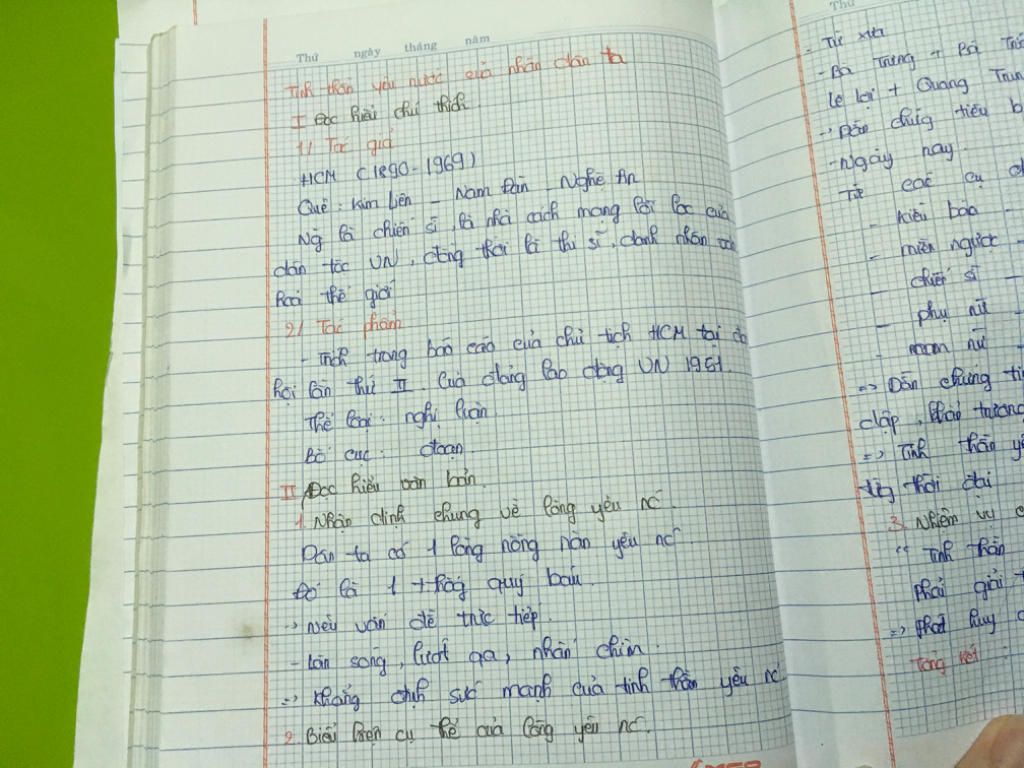 Thứ ngày tháng năm
Tinh thần yêu nước của nhân dân ta
I Đọc hiểu chú thích
1/ Tác giả
HCM (1890-1969)
Quê: Kim Liên - Nam Đàn - Nghệ An
Ng là chiến sĩ, là nhà cách mạng lỗi lạc của
dân tộc VN, đồng thời là thi sĩ, danh nhân văn
hoá thế giới
2/ Tác phẩm
- Trích trong báo cáo của chủ tịch HCM tại đại
hội lần thứ II. Của đảng lao động VN 1951.
Thể loại: nghị luận
Bố cục: đoạn
II Đọc hiểu văn bản.
1. Nhận định chung về lòng yêu nc
Dân ta có 1 lòng nồng nàn yêu nc
Đó là 1 thống quý báu.
-> nêu vấn đề trực tiếp.
- làn sóng, lướt qa, nhấn chìm.
=> khẳng định sức mạnh của tinh thần yêu nc
2. Biểu hiện cụ thể của lòng yêu nc.
Thứ
- Từ xưa
- Bà Trưng + Bà
Lê Lợi + Quang Trung
-> Dẫn chứng tiêu
- Ngày nay
Từ các cụ
- kiều bào
- miền ngược
- chiến sĩ
- phụ nữ
- nam nữ
=> Dẫn chứng
=> Tinh thần
thời đại
3. Nhiệm vụ
" Tinh thần
phải
=> phát huy
Tổng kết: